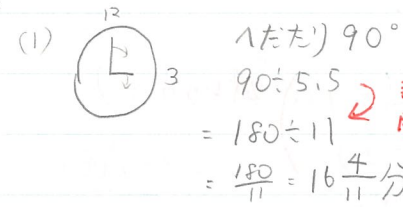 (1)
12
3
へだたり 90°
90÷5.5
= 180÷11
= 180/11 = 16 4/11 分